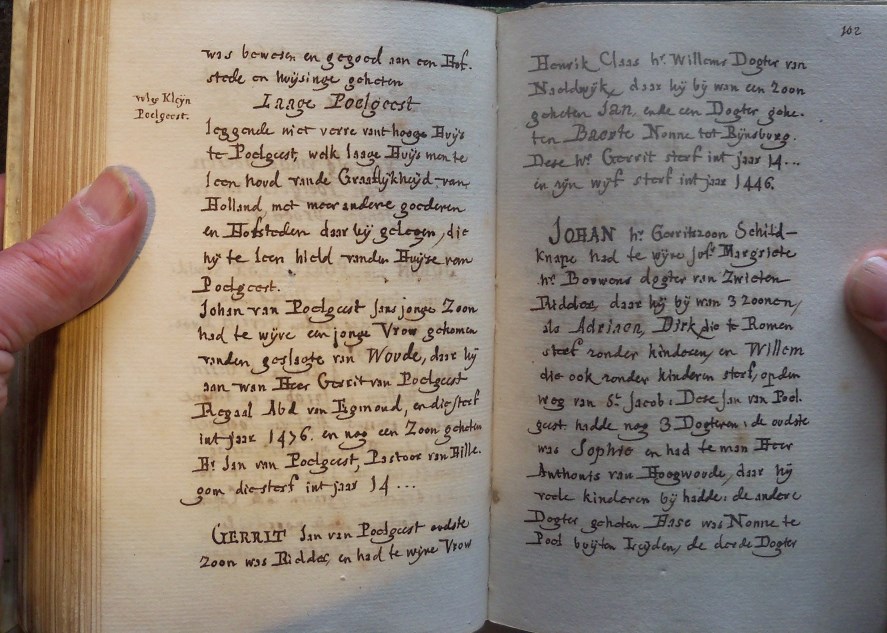 was bewesen en gegoed aan een Hof-
stede en huijsinge geheten
vlgs Kleijn
Poelgeest.
Laage Poelgeest
leggende niet verre vant hooge Huijs
te Poelgeest, welk laage Huijs men te
leen houd vande Graaflijkheijd van
Holland met meer andere goederen
en Hofsteden daar bij gelegen, die
hij te leen hield vanden Huijse van
Poelgeest.
Johan van Poelgeest Jans jonge Zoon
had te wijve een jonge Vrow gekomen
vanden geslagte van Woude, daar hij
aan wan Heer Gerrit van Poelgeest
Regaal Abd van Egmond, en die sterf
int jaar 1476. en nog een Zoon geheten
Hr. Jan van Poelgeest, Pastoor van Hille-
gom die sterf int jaar 14 ...
GERRIT Jan van Poelgeest oudste
Zoon was Ridder, en had te wijve Vrow
102
Henrik Claas hr. Willems Dogter van
Naeldwijk, daar hij bij wan een Zoon
geheten Jan, ende een Dogter gehe-
ten Baerte Nonne tot Rijnsburg.
Dese hr. Gerrit sterf int jaar 14...
en zijn wijf sterf int jaar 1446.
JOHAN hr. Gerritszoon Schild-
knape had te wijve jofr. Margriete
hr. Bouwens dogter van Zwieten
Ridder, daar hij bij wan 3 zoonen,
als Adriaen, Dirk, die te Romen
sterf zonder kinderen, en Willem
die ook zonder kinderen sterf, op den
weg van St. Jacob: Dese Jan van Poel-
geest hadde nog 3 Dogteren: de oudste
was Sophie en had te man Heer
Anthonis van Hoogwoude, daar hij
vele kinderen bij hadde: de andere
Dogter geheten Hase was Nonne te
Poel buijten Leijden, de derde Dogter